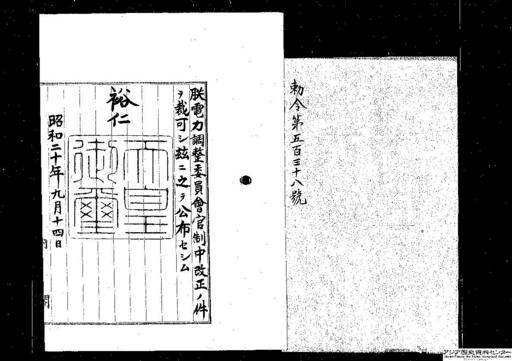 勅令第五百三十八號
朕電力調整委員會官制中改正ノ件
ヲ裁可シ玆ニ之ヲ公布セシム
裕仁
天皇
御璽
昭和二十年九月十四日
アジア歴史資料センター